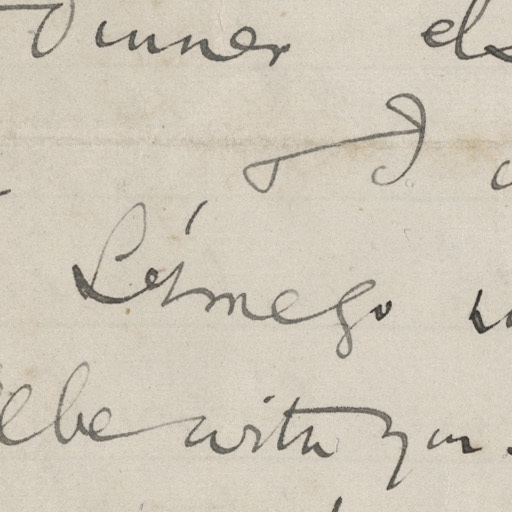 Dinner els
I
Let me go
be with you.